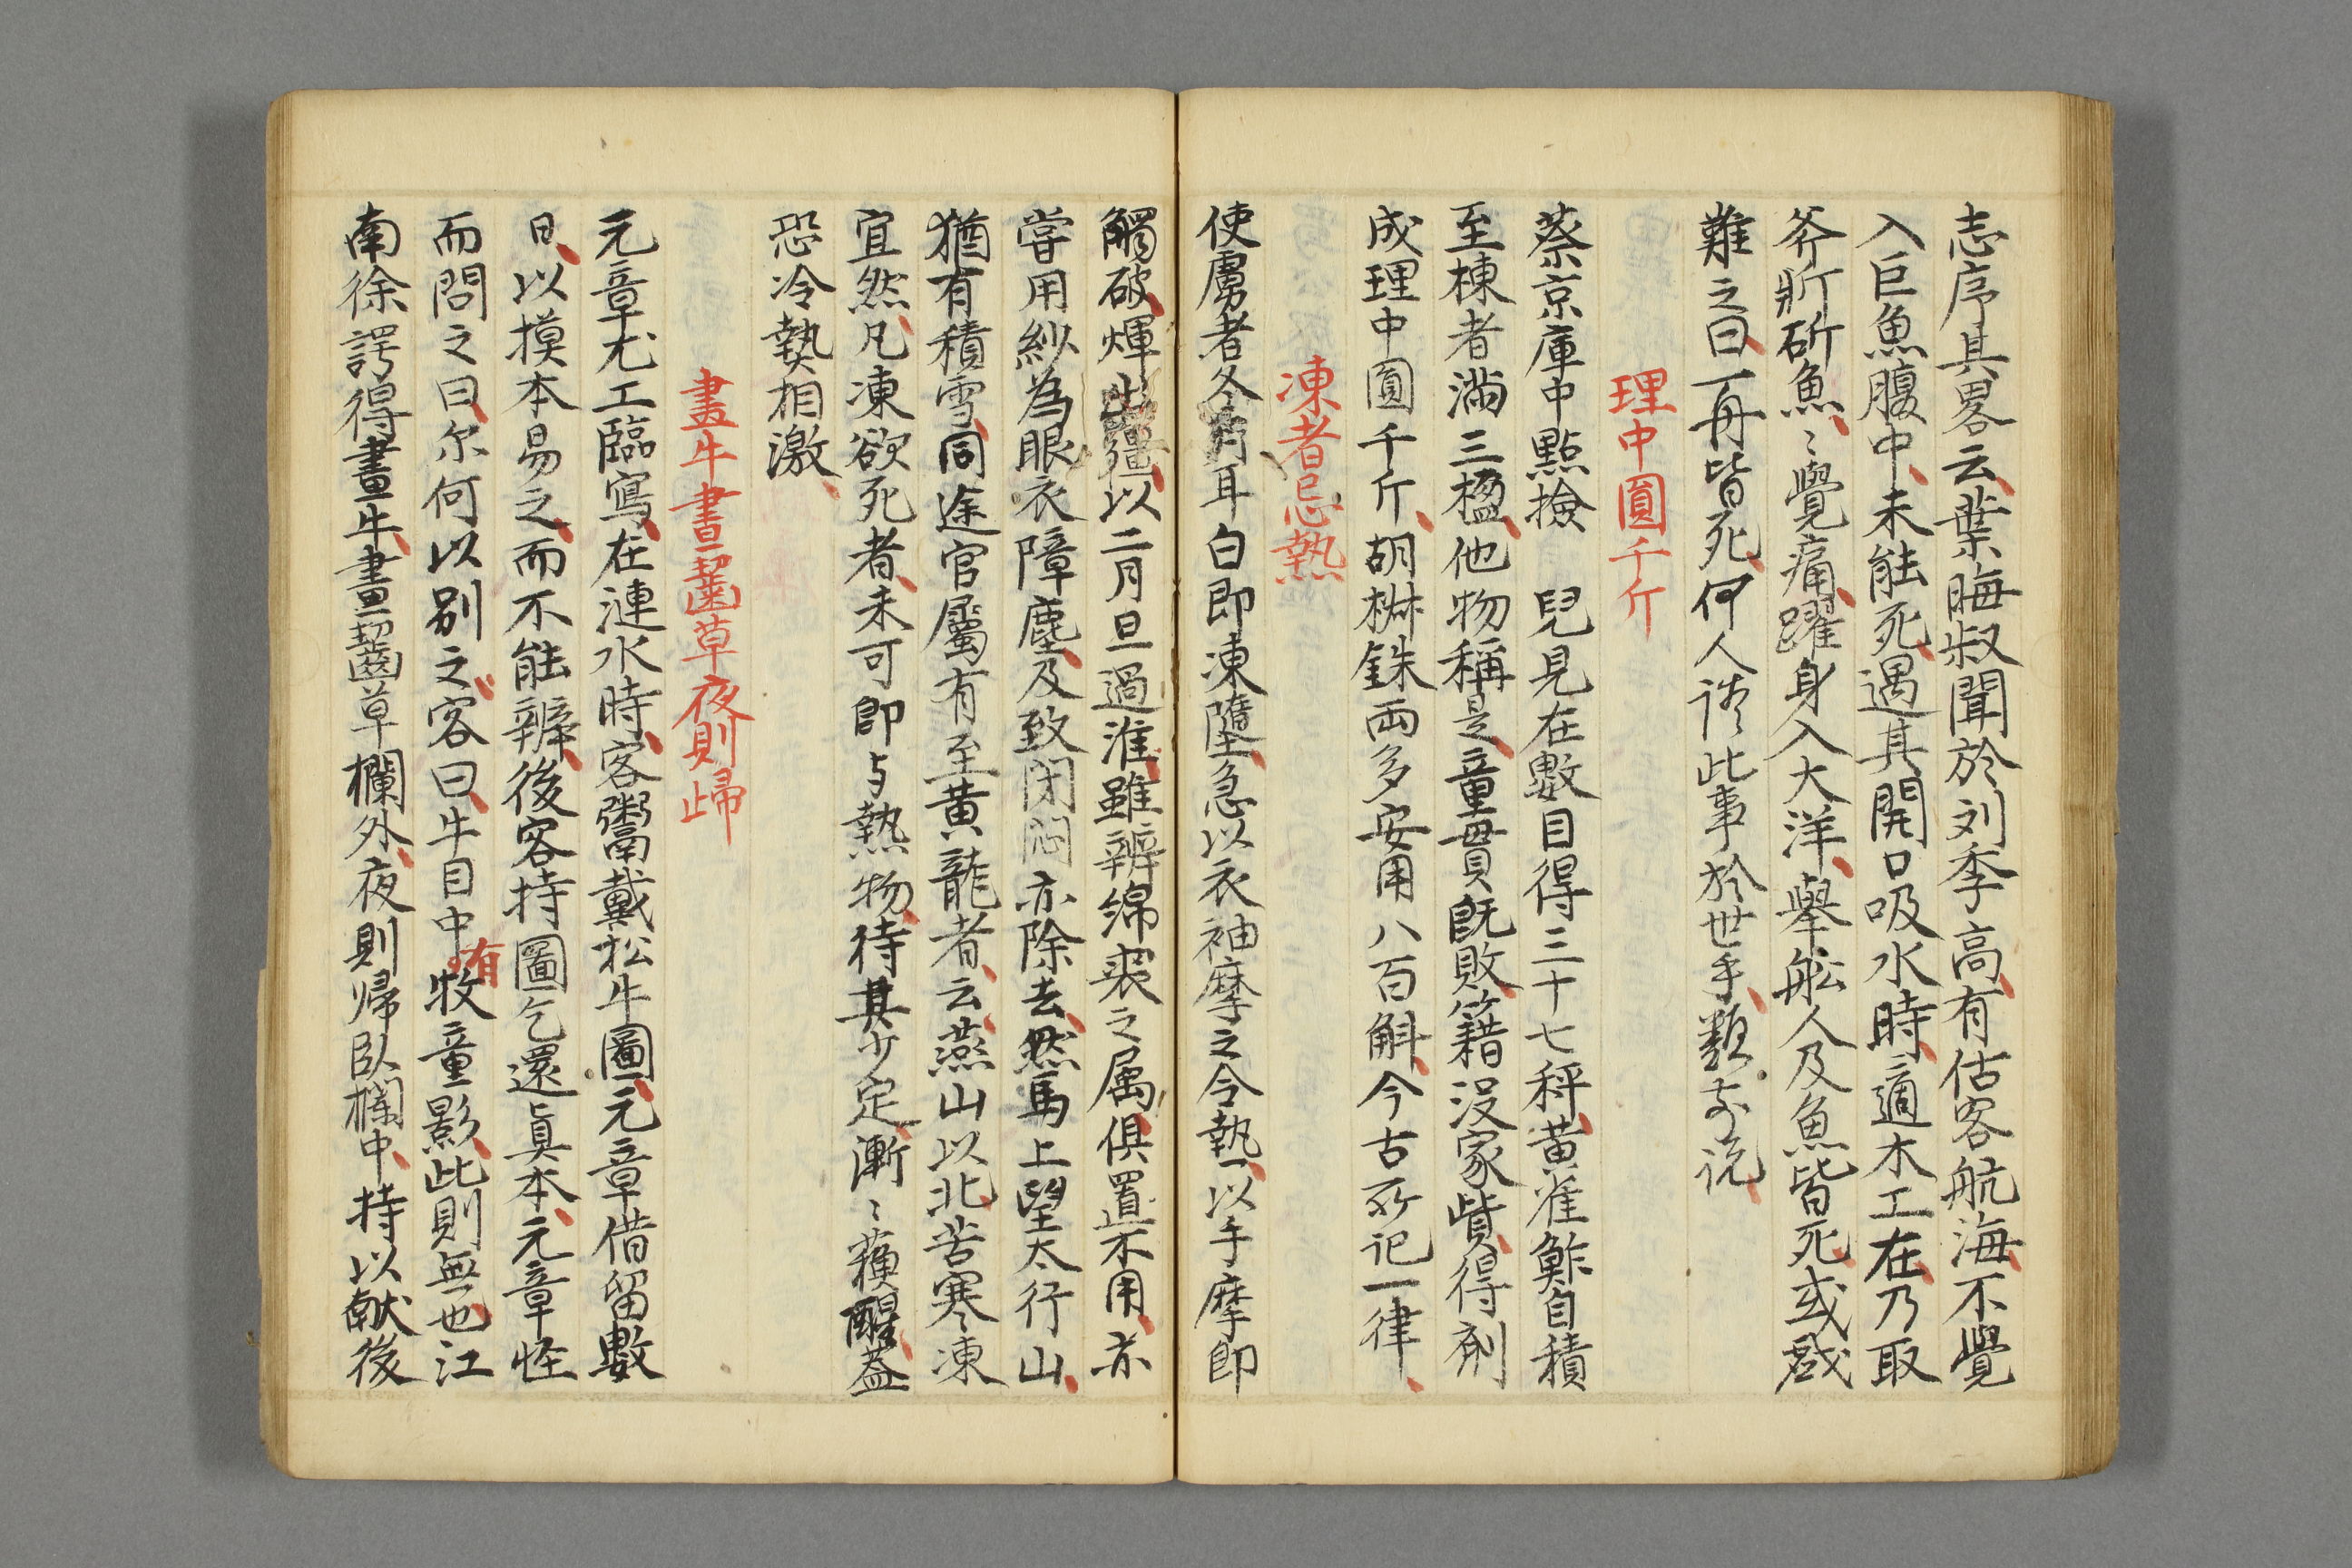 志序其畧云葉晦叔聞於刘季高有估客航海不覺
入巨魚腹中未能死遇其開口吸水時適木工在乃取
斧斨斫魚〻覺痛躍身入大洋舉舩人及魚皆死或戲
難之曰一再皆死何人談此事於世乎類前说
理中圓千斤
蔡京庫中點撿 兒見在數目得三十七秤黄雀鮓自積
至棟者滿三楹他物稱是童貫既敗籍没家貲得劑
成理中圓千斤胡椒銖两多安用八百斛今古所记一律
凍者忌熱
使虜者冬月耳白即凍墮急以衣袖摩之令熱以手摩即
觸破煇出疆以二月旦過淮雖辨綿裘之属俱置不用亦
嘗用紗為眼衣障塵及致闭悶亦除去然馬上望太行山
猶有積雪同途官屬有至黄龍者云燕山以北苦寒凍
宜然凡凍欲死者未可即与熱物待其少定漸〻蘓醒盖
恐冷熱相激
畫牛晝齧草夜則歸
元章尤工臨寫在漣水時客鬻戴松牛圖元章借留數
日以摸本易之而不能辨後客持圖乞還真本元章怪
而問之曰尔何以别之客曰牛目中有牧童影此則無也江
南徐諤得畫牛晝齧草欄外夜則帰臥欄中持以献後